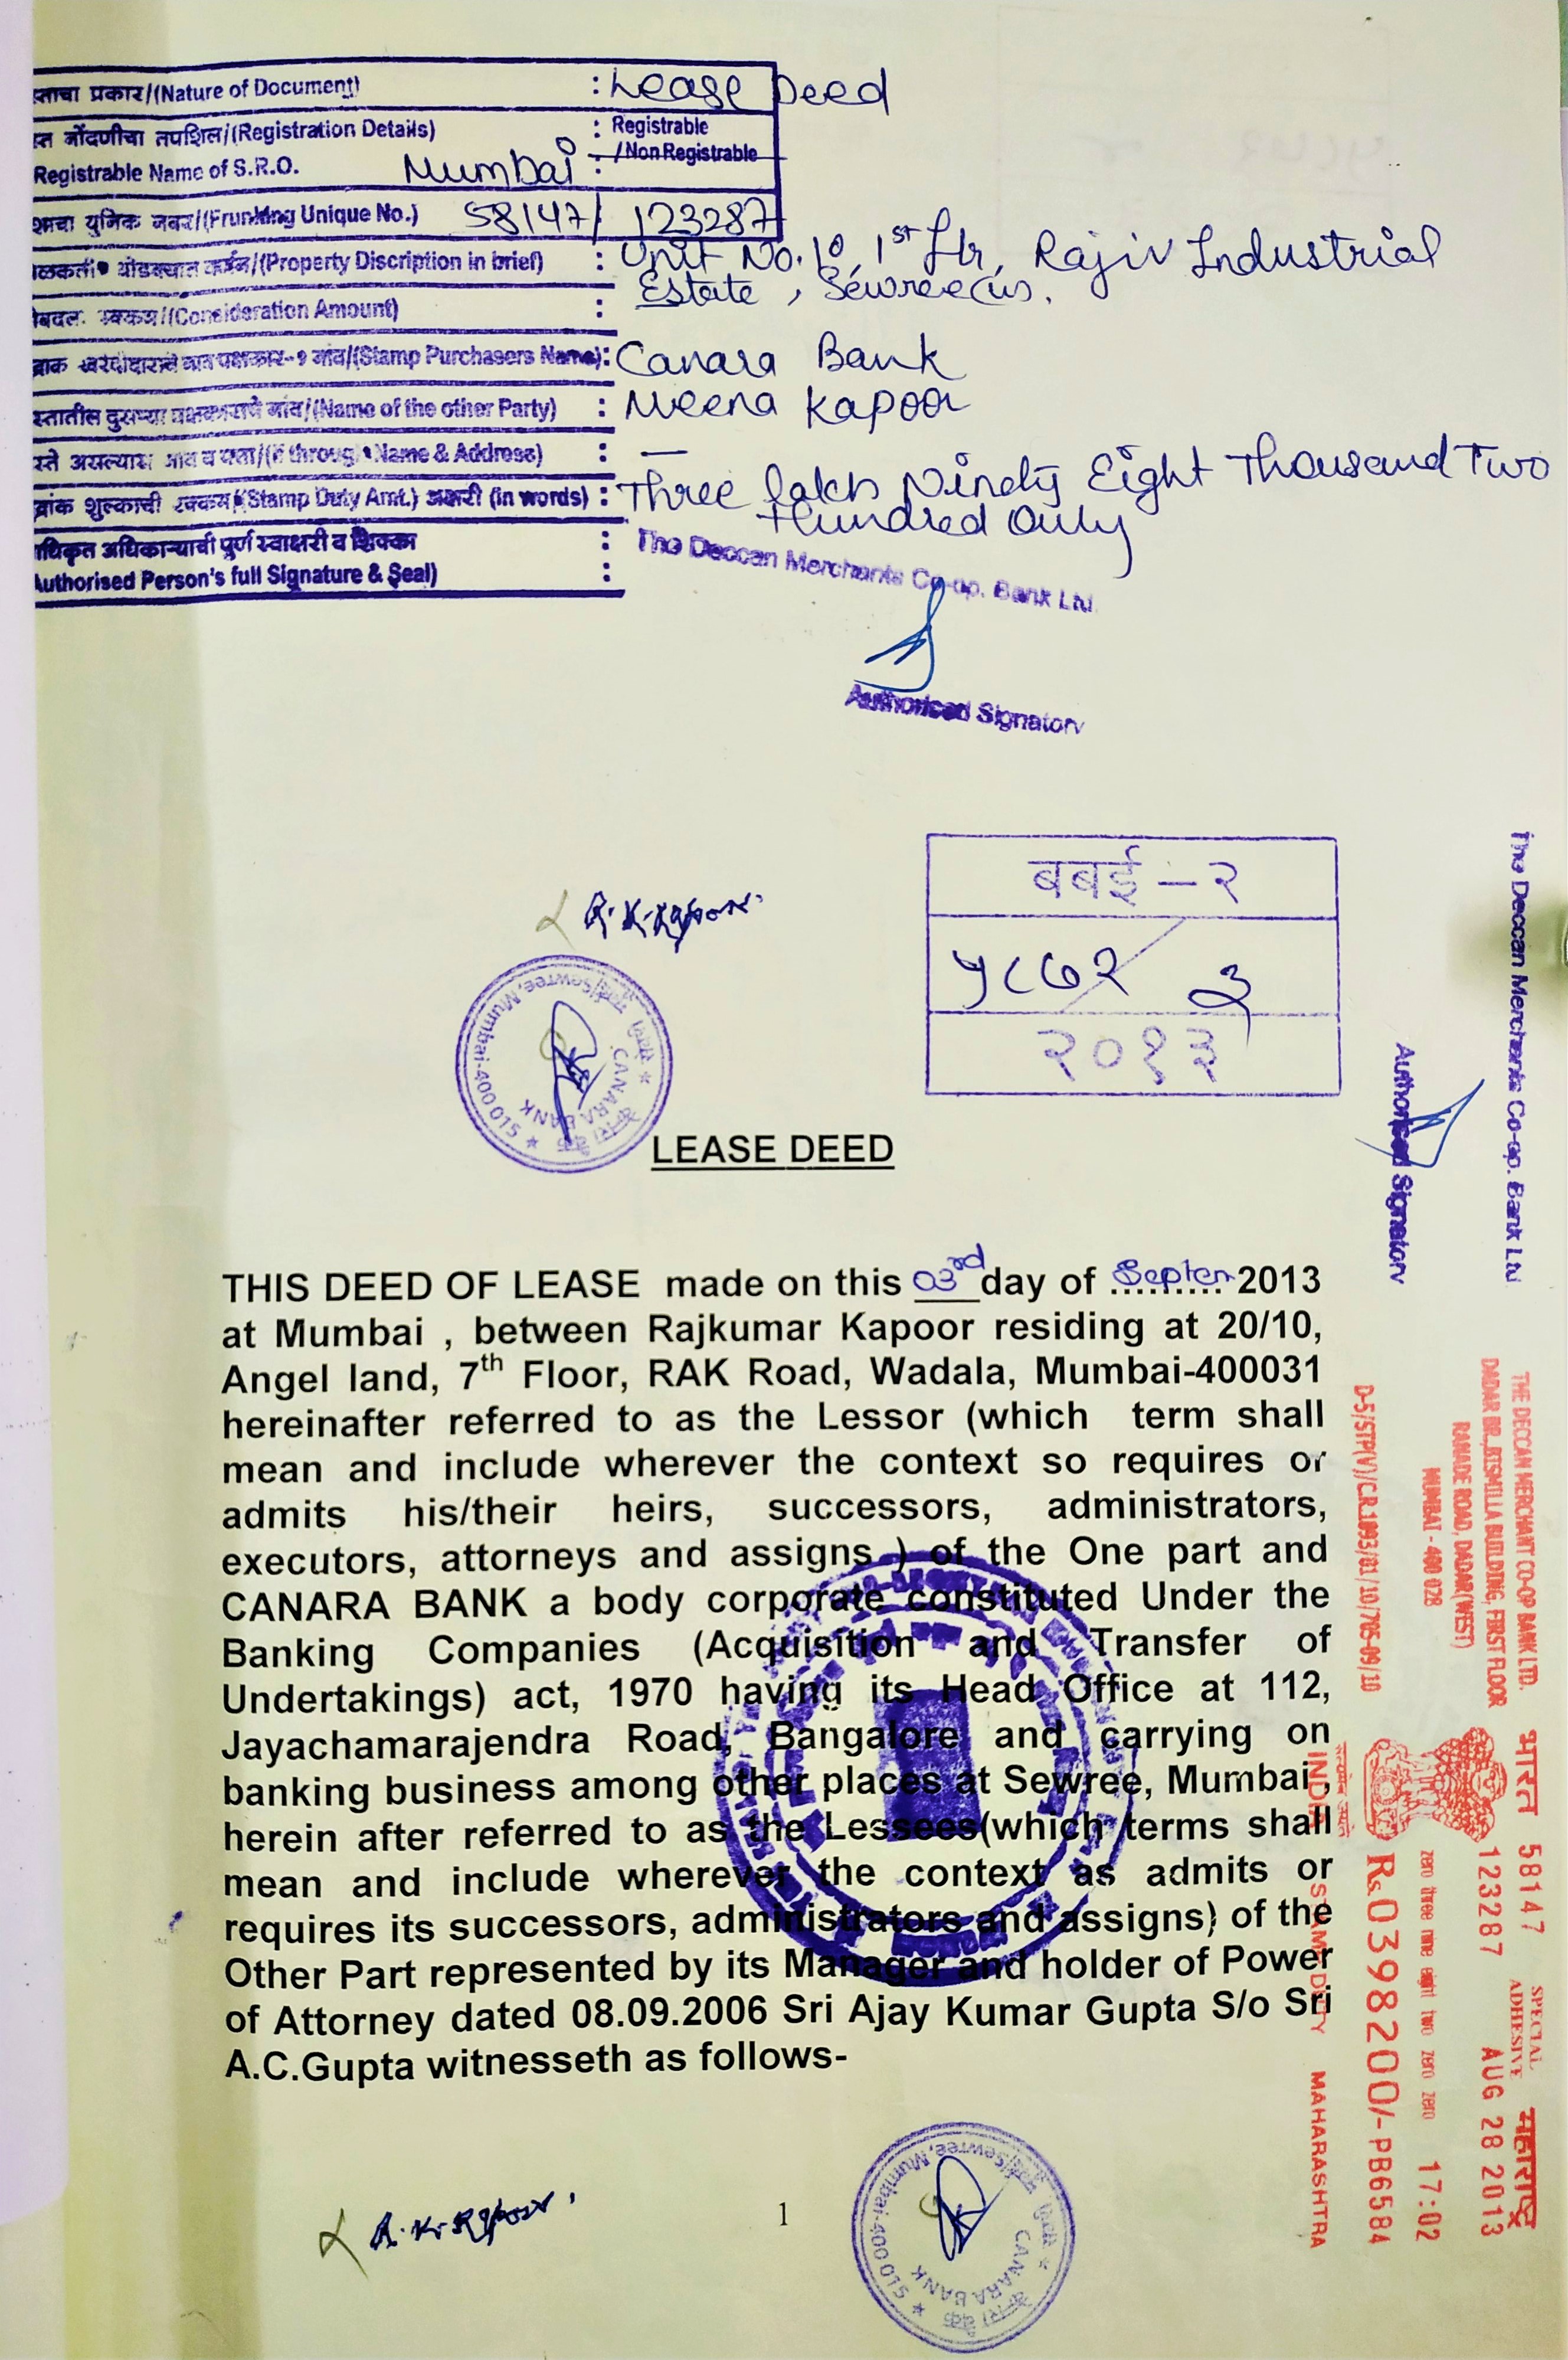 स्ताचा प्रकार/(Nature of Document) : Lease Deed
स्त नोंदणीचा तपशिल/(Registration Details) : Registrable
/ Non Registrable
Registrable Name of S.R.O. Mumbai :
(Frunking Unique No.) 58147/ 123287
(Property Discription in brief) : Unit No. 10, 1st flr, Rajiv Industrial
Estate, Sewree(w).
(Consideration Amount) :
(Stamp Purchasers Name): Canara Bank
(Name of the other Party) : Meena Kapoor
(If through Name & Address) : —
(Stamp Duty Amt.) अक्षरी (in words) : Three lakh Ninety Eight Thousand Two
Hundred Only
धिकृत अधिकाऱ्याची पुर्ण स्वाक्षरी व शिक्का :
Authorised Person's full Signature & Seal) :
The Deccan Merchants Co-op. Bank Ltd.
Authorised Signatory
R. K. Kapoor.
बबई - २
५८७२ ३
२०१३
CANARA BANK
Sewree, Mumbai-400 015
LEASE DEED
THIS DEED OF LEASE made on this 03rd day of Septem 2013
at Mumbai , between Rajkumar Kapoor residing at 20/10,
Angel land, 7th Floor, RAK Road, Wadala, Mumbai-400031
hereinafter referred to as the Lessor (which term shall
mean and include wherever the context so requires or
admits his/their heirs, successors, administrators,
executors, attorneys and assigns ) of the One part and
CANARA BANK a body corporate constituted Under the
Banking Companies (Acquisition and Transfer of
Undertakings) act, 1970 having its Head Office at 112,
Jayachamarajendra Road, Bangalore and carrying on
banking business among other places at Sewree, Mumbai ,
herein after referred to as the Lessees(which terms shall
mean and include wherever the context as admits or
requires its successors, administrators and assigns) of the
Other Part represented by its Manager and holder of Power
of Attorney dated 08.09.2006 Sri Ajay Kumar Gupta S/o Sri
A.C.Gupta witnesseth as follows-
R. K. Kapoor.
1
CANARA BANK
Sewree, Mumbai-400 015
The Deccan Merchants Co-op. Bank Ltd
Authorised Signatory
THE DECCAN MERCHANT CO-OP BANK LTD.
DADAR BR. BISMILLA BUILDING, FIRST FLOOR
RANADE ROAD, DADAR(WEST)
MUMBAI - 400 028
D-5/STP(V)/C.R.1093/01/10/705-09/10
भारत 58147 SPECIAL ADHESIVE महाराष्ट्र
123287 AUG 28 2013
zero three nine eight two zero zero 17:02
Rs.0398200/-PB6584
INDIA STAMP DUTY MAHARASHTRA